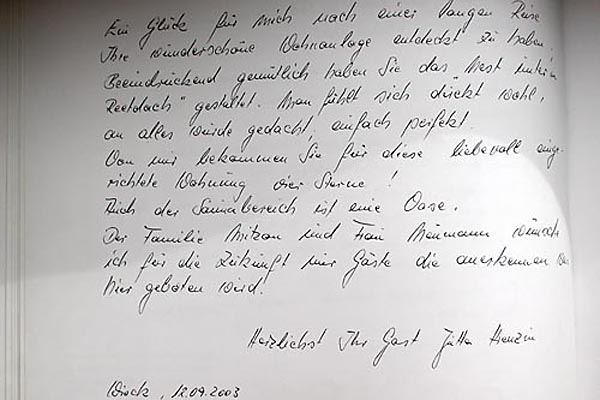 Ein Glück für mich nach einer langen Reise
Ihre wunderschöne Wohnanlage entdeckt zu haben.
Beeindruckend gemütlich haben Sie das "Nest unterm
Reetdach" gestaltet. Man fühlt sich direkt wohl,
an alles wurde gedacht, einfach perfekt.
Von mir bekommen Sie für diese liebevoll einge-
richtete Wohnung vier Sterne!
Auch der Saunabereich ist eine Oase.
Der Familie und Frau Neumann wünsche
ich für die Zukunft nur Gäste die anerkennen was
hier geboten wird!
Herzlichst Ihr Gast Jutta
Wieck, 12.09.2003